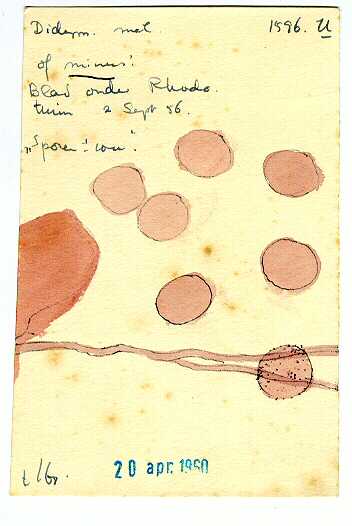 Diderm. mat. 1596. U
of minus!
Blad onder Rhodo.
tuin 2 Sept 56.
"Sporen!
20 apr. 1960